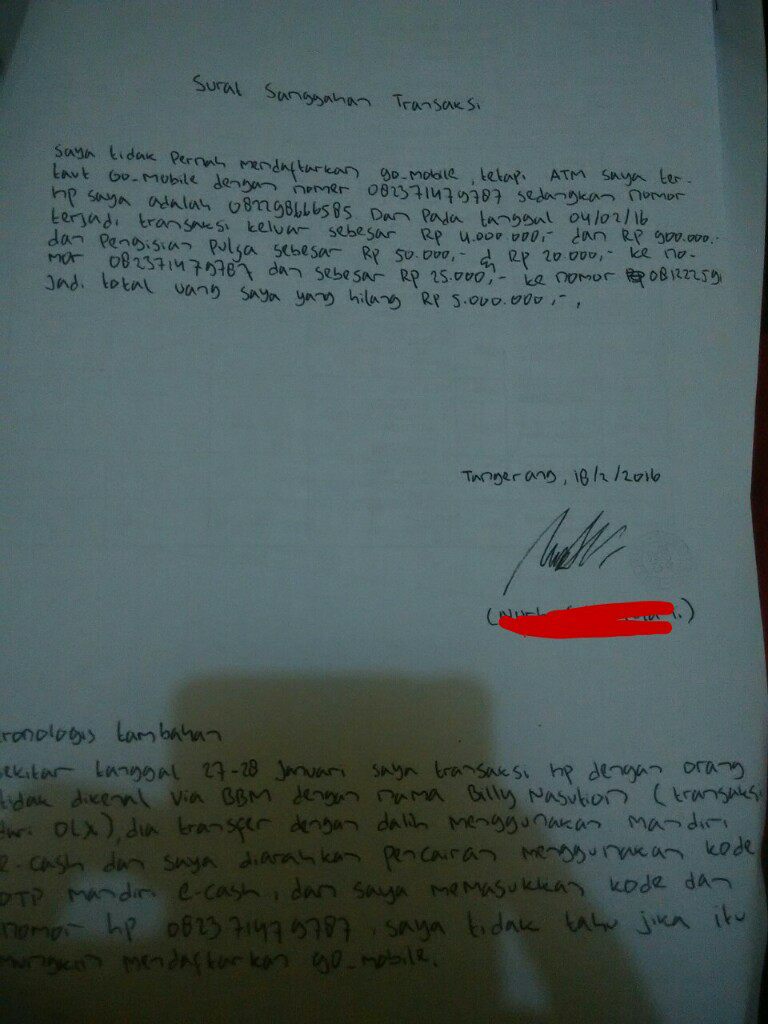 Surat Sanggahan Transaksi
Saya tidak pernah mendaftarkan go_mobile, tetapi ATM saya ter-
taut Go_Mobile dengan nomer 082371479787 sedangkan nomor
hp saya adalah 082298666585 Dan pada tanggal 04/02/16
terjadi transaksi keluar sebesar Rp 4.000.000,- dan Rp 900.000.-
dan Pengisian pulsa sebesar Rp 50.000,- & Rp 20.000,- ke no-
mor 082371479787 dan sebesar Rp 25.000,- ke nomor 08122259
Jadi total uang saya yang hilang Rp 5.000.000,-,
Tangerang, 18/2/2016
ronologis tambahan
ekitar tanggal 27-28 Januari saya transaksi hp dengan orang
tidak dikenal via BBM dengan nama Billy Nasution (transaksi
dari OLX), dia transfer dengan dalih menggunakan Mandiri
e-cash dan saya diarahkan pencairan menggunakan kode
OTP Mandiri e-cash, dan saya memasukkan kode dan
nomor hp 082371479787, saya tidak tahu jika itu
mungkin mendaftarkan go_mobile.